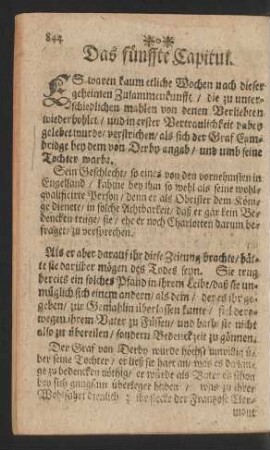 844
Das fünffte Capitul.
ES waren kaum etliche Wochen nach dieser
geheimen Zusammenkunfft / die zu unter-
schiedlichen mahlen von denen Verliebten
wiederhohlet / und in erster Vertraulichkeit dabey
gelebet wurde / verstrichen / als sich der Graf Cam-
bridge bey dem von Derby angab / und umb seine
Tochter warbe.
Sein Geschlecht / so eines von den vornehmsten in
Engelland / kahme bey ihan so wohl als seine wohl-
qualificirte Person / denn er als Obrister dem Köni-
ge dienete / in solche Achtbarkeit / daß er gar kein Be-
dencken truge / sie / ehe er noch Charlotten darum be-
fraget / zu versprechen.
Als er aber darauf ihr diese Zeitung brachte / hät-
te sie darüber mögen des Todes seyn. Sie trug
bereits ein solches Pfand in ihrem Leibe / daß sie un-
müglich sich einem andern / als dem / der es ihr ge-
geben / zur Gemahlin überlassen kante / fiel dero-
wegen ihrem Vater zu Füssen / und bath / sie nicht
also zu übereilen / sondern Bedenckzeit zu gönnen.
Der Graf von Derby wurde höchst unwillig ü-
ber seine Tochter / er ließ sie hart an / was es da lan-
ge zu bedencken nöthig / er würde als Vater es schon
bey sich gnugsam überleget haben / was zu ihrer
Wohlfahrt dienlich / ihr stecke der Frantzose Cler-
mont